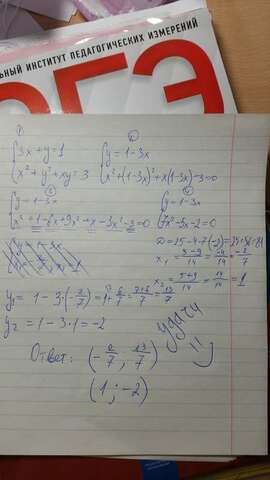 ЬНЫЙ ИНСТИТУТ ПЕДАГОГИЧЕСКИХ ИЗМЕРЕНИЙ
ОГЭ
1) 2)
{3x+y=1 {y=1-3x
{x²+y²+xy=3 {x²+(1-3x)²+x(1-3x)-3=0
3) 4)
{y=1-3x {y=1-3x
{x²+1-6x+9x²+x-3x²-3=0 {7x²-5x-2=0
D=25-4·7(-2)=25+56=81
x₁ = (5-9)/14 = -4/14 = -2/7
x₂ = (5+9)/14 = 14/14 = 1
y₁ = 1-3·(-2/7) = 1+6/7 = (7+6)/7 = 13/7
y₂ = 1-3·1 = -2
удачи
Ответ: (-2/7; 13/7)
(1; -2)